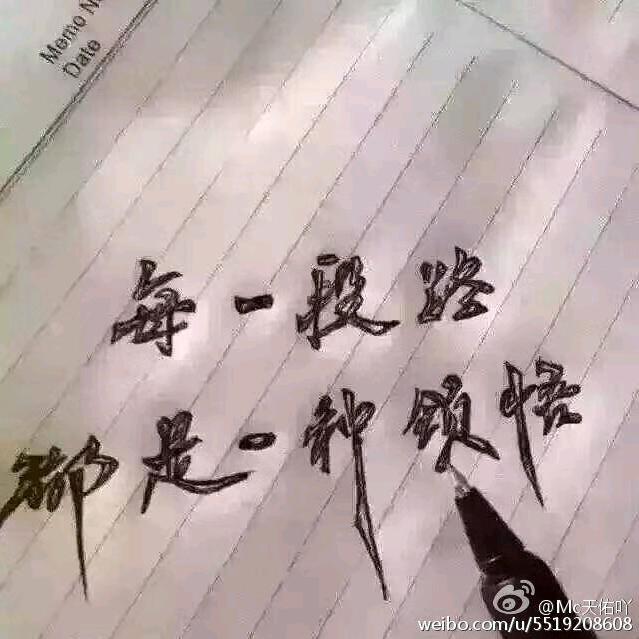 Memo No
Date
每一段路
都是一种领悟
@Mc天佑吖
weibo.com/u/5519208608